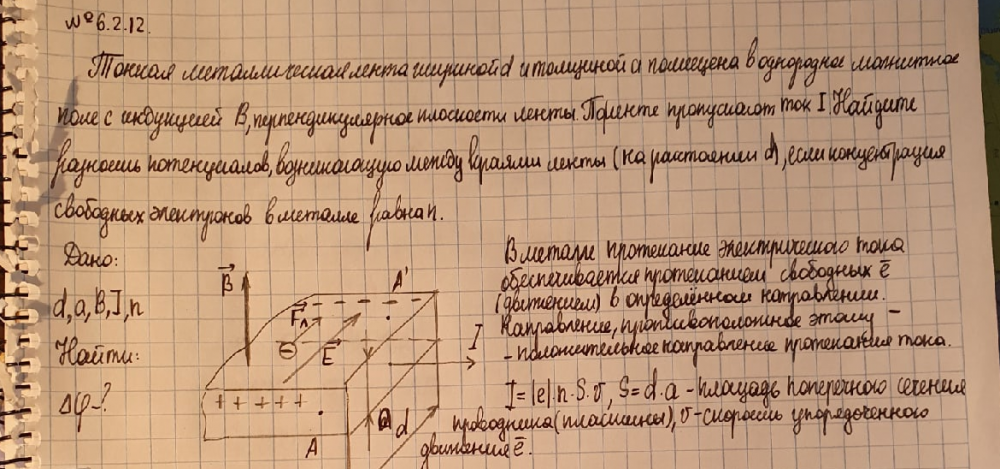 №6.2.12.
Тонкая металлическая лента шириной d и толщиной a помещена в однородное магнитное
поле с индукцией B, перпендикулярное плоскости ленты. По ленте пропускают ток I. Найдите
разность потенциалов, возникающую между краями ленты (на расстоянии d), если концентрация
свободных электронов в металле равна n.
Дано:
d, a, B, I, n
Найти:
Δφ-?
B⃗
A'
F⃗л
⊖
E⃗
I
+ + + + +
a
d
A
В металле протекание электрического тока
обеспечивается протеканием свободных e̅
(движением) в определённом направлении.
Направление, противоположное этому -
- положительное направление протекания тока.
I = |e|·n·S·v, S = d·a - площадь поперечного сечения
проводника (пластины), v - скорость упорядоченного
движения e̅.